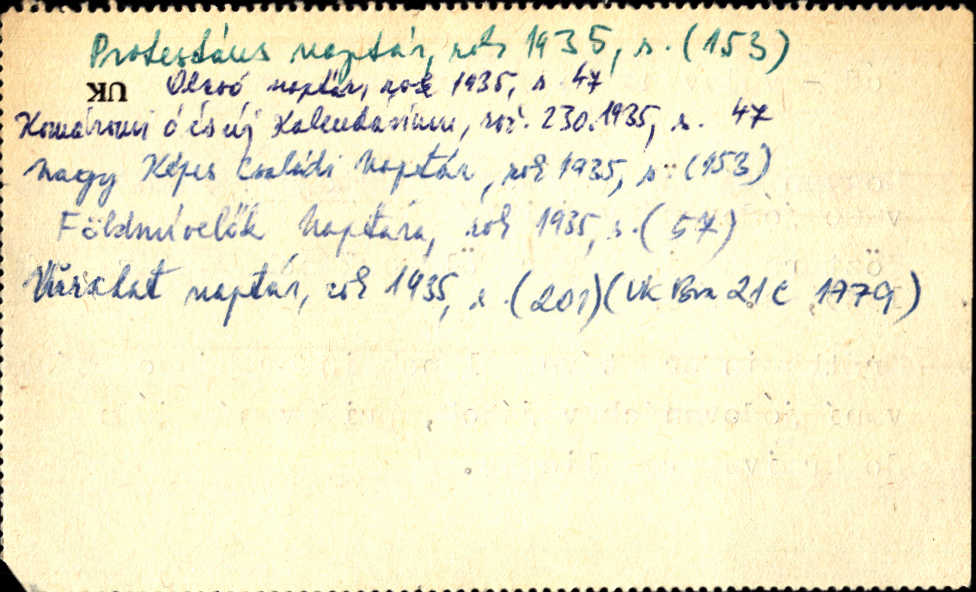 Protestáns naptár, rok 1935, s. (153)
UK Olcsó naptár, rok 1935, s. 47
Komáromi ó és új Kalendárium, roč. 230. 1935, s. 47
Nagy Képes Családi Naptár, rok 1935, s. (153)
Földművelők Naptára, rok 1935, s. (57)
naptár, rok 1935, s. (201) (UK Bra 21 C 1779)